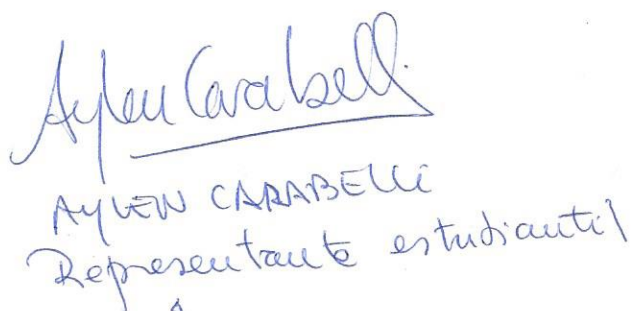 Aylen Carabelli
AYLEN CARABELLI
Representante estudiantil